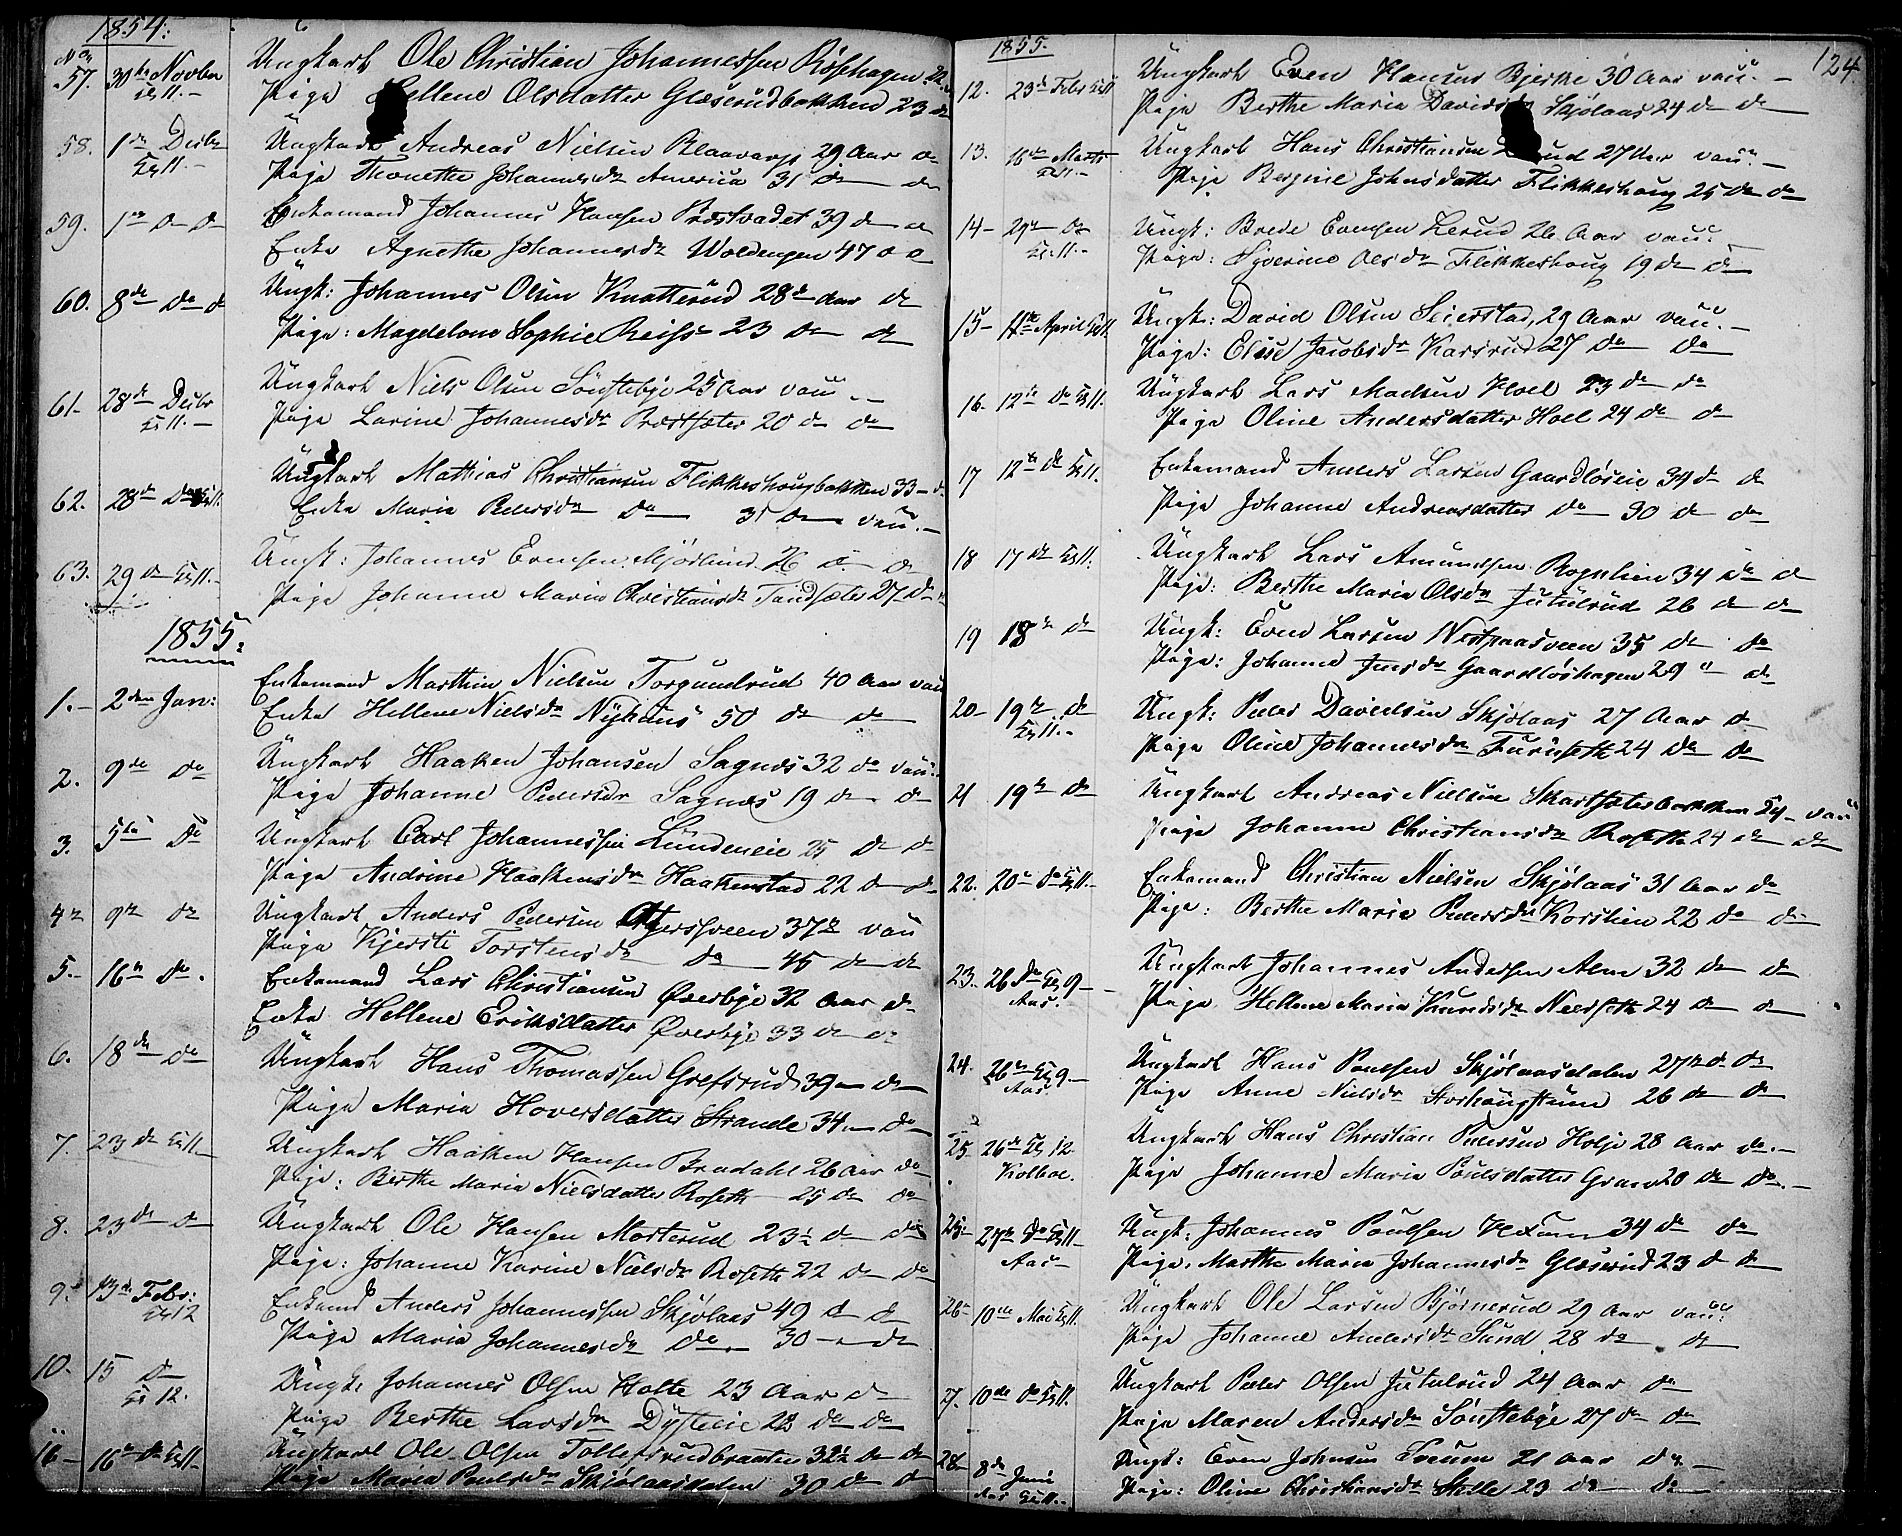 1854.
No
57. 30te Novbr Ungkarl Ole Christian Johannessen Röshagen 22
Kl 11.– Pige Hellene Olsdatter Glæserudbakken 23 do
58. 1de Decbr Ungkarl Andreas Nielsen Blaavarp 29 Aar do
Kl 11.– Pige Thonette Johannesdr America 31 do do
59. 1ste do do Enkemand Johannes Hansen Præstvadet 39 do do
Enke Agnethe Johannesdr Woldengen 47 do do
60. 8de do do Ungk: Johannes Olsen Knatterud 28 do Aar do
Pige: Magdelone Sophie Reiss 23 do do
61– 28de Decbr Ungkarl Niels Olsen Sönstebye 25 Aar vacc.–
Kl 11.– Pige Larine Johannesdr Præstsæter 20 do do
62. 28de do Kl 11. Ungkarl Mathias Christiansen Flikkeshougbakken 33– do
Enke Maria Pedersdr do 31 do vacc.–
63. 29 do Kl 11.– Ungk: Johannes Evensen Mjörlund 26 do do
Pige Johanne Maria Christiansdr Sandsæter 27 do
1855.
1.– 2den Jan: Enkemand Marthin Nielsen Torgundrud 40 Aar vacc
Enke Hellene Nielsdr Nÿhuus 50 do do
2. 9de do Ungkarl Haaken Johansen Sagnæs 32 do vacc.
Pige Johanne Pedersdr Sagnæs 19 do do
3. 5te do Ungkarl Carl Johannessen Lundeneie 25 do do
Pige Andrine Haakensdr Haakenstad 22 do do
4 9de do Ungkarl Anders Pedersen 37 do vacc
Pige Kjersti Torstensdr do 45 do do
5.– 16de do. Enkemand Lars Christiansen Øverbye 32 Aar do
Enke Hellene Eriksdatter Øverbye 33 do do
6. 18de do Ungkarl Hans Thomassen Grefsrud 39 – do
Pige Maria Hoversdatter Strande 34 – do
7. 23 do Kl 11– Ungkarl Haaken Hansen Bradahl 26 Aar do
Pige: Berthe Maria Nielsdatter Roseth 25 do do
8. 23de do Ungkarl Ole Hansen Morterud 23½ do do
Pige: Johanne Karine Nielsdr Roseth 22 do do
9. 13de Febr: Enkemd Anders Johannessen Skjølaas 49 do do
Kl 12 Pige Maria Johannesdr do 30 – do
10. 15 do Ungk: Johannes Olsen Holte 23 Aar do
Kl 12. Pige Berthe Larsdr Dÿsteeie 28 do do
16– 16de do Kl 11– Ungkarl Ole Olsen Tollefsrudbraaten 32½ do do
Pige Maria Paulsdr Skjølaasdalen 30 do do
1855. 124.
12. 23de Febr Kl 11 Ungkarl Even Hansen Bjerke 30 Aar vacc.–
Pige Berthe Maria Davidsdr Skjölaas 24 do do
13. 16de Marts Ungkarl Hans Christiansen 27 Aar vacc.–
Kl 11.– Pige Bergine Johnsdatter Flikkeshoug 25 do do
14– 29de do Ungk: Brede Evensen Lerud 26 Aar vacc.
Kl. 11.– Pige: Syverine Olsdr Flikkeshoug 19 do do
15– 11te April Kl 11. Ungk: David Olsen Seierstad, 29 Aar vacc.–
Pige: Elise Jacobsdr Karsrud 27 do do
16. 12te do Kl 11. Ungkarl Lars Madsen Hoel 23 do do
Pige Oline Andersdatter Hoel 24 do do
17 12te do Kl 11. Enkemand Anders Larsen Gaardløseie 34 do do
Pige Johanne Andreasdatter do 30 do do
18 17 do Kl 11. Ungkarl Lars Amundsen Rognlien 34 do do
Pige: Berthe Maria Olsdr Jutulrud 26 do do
19 18de do Ungk: Even Larsen Nestpaasveen 35 do do
Pige: Johanne Jensdr Gaardløshagen 29 " do
20– 19de do Ungk: Peder Davidsen Skjølaas 27 Aar do
Kl 11.– Pige Oline Johannesdr Furuseth 24 do do
21 19de do Ungkarl Andreas Nielsen Skartsæterbakken 24– vacc
Pige Johanne Christiansdr Roseth 24 do do
22. 20de do Kl 11.– Enkemand Christian Nielsen Skjølaas 31 Aar do
Pige: Berthe Maria Pedersdr Korslien 22 do do
23. 26 do Kl 9– Ungkarl Johannes Andersen Alm 32 do do
Aas. Pige Hellene Maria Knudsdr Neerseth 24 do do
24. 26de Kl 9– Ungkarl Hans Poulsen Skjølaasdalen 27½ do do
Aas. Pige Anne Nielsdr Storhougstuen 26 do do
25– 26de Kl 12 Ungkarl Hans Christian Pedersen Holje 28 Aar do.–
Kolboe. Pige Johanne Maria Poulsdatter Gran 20 do do.–
25– 27de do Kl 11– Ungk: Johannes Poulsen Hexum 34 do do
Aas Pige. Marthe Maria Johannesdr Glæserud 23 do do
26– 10de Mai Kl 11. Ungkarl Ole Larsen Bjørnerud 29 Aar vacc:
Pige Johanne Andersdr Sund 28 do do
27. 10de do Kl 11. Ungkarl Peder Olsen Jutulrud 24 Aar do
Pige Maren Andersdr Sönstebye 27 do do
28– 8de Juni Ungk: Even Johnsen Evrum 21 Aar do –
Aas Kl 11.– Pige: Oline Christiansdr Stelle 23 do do